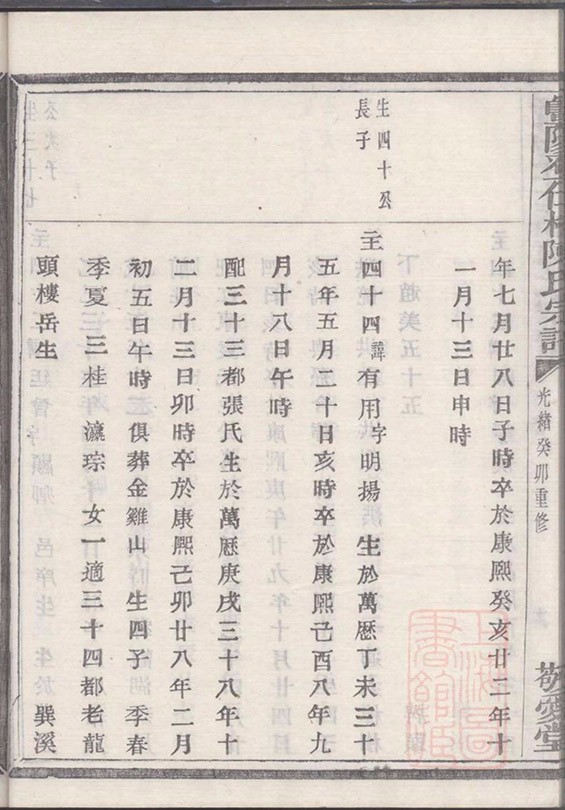 陳氏宗譜
光緒癸卯重修
敬愛堂
年七月廿八日子時卒於康熙癸亥廿二年十
一月十三日申時
生四十公
長子
主四十四諱有用字明揚 生於萬歷丁未三十
五年五月二十日亥時卒於康熙己酉八年九
月十八日午時
配三十三都張氏生於萬歷庚戌三十八年十
二月十三日卯時卒於康熙己卯廿八年二月
初五日午時俱葬金雞山生四子 季春
季夏 三桂 瀛琮 女一適三十四都老龍
頭樓岳生 巽溪